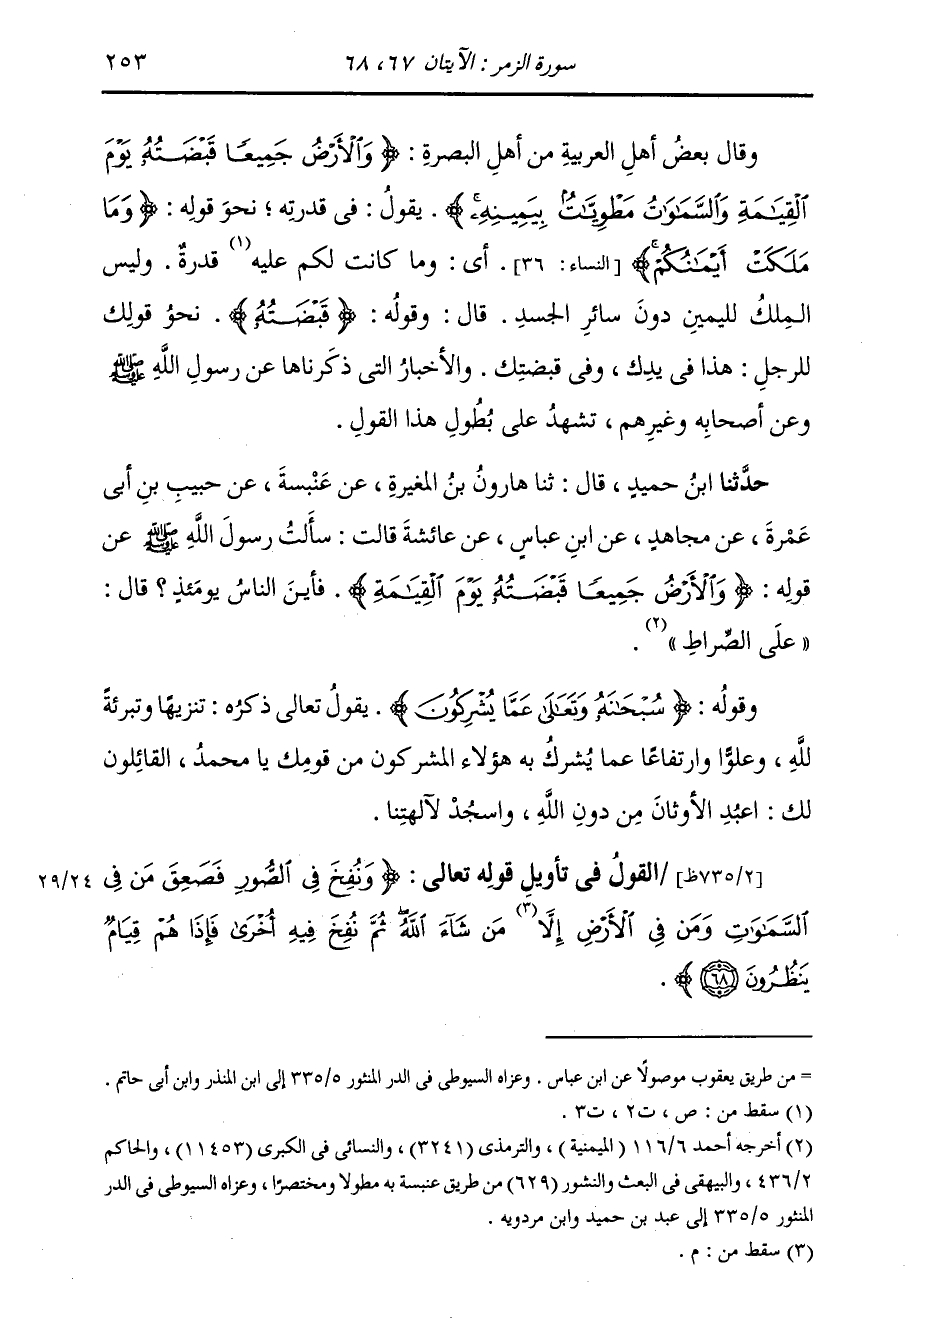 سورة الزمر : الآيتان ٦٧، ٦٨ ٢٥٣
وقال بعضُ أهلِ العربيةِ من أهلِ البصرةِ : ﴿ وَٱلْأَرْضُ جَمِيعًا قَبْضَتُهُۥ يَوْمَ
ٱلْقِيَٰمَةِ وَٱلسَّمَٰوَٰتُ مَطْوِيَّٰتٌۢ بِيَمِينِهِۦۚ ﴾ . يقولُ : فى قدرتِه ؛ نحوَ قولِه : ﴿ وَمَا
مَلَكَتْ أَيْمَٰنُكُمْۚ ﴾ [ النساء : ٣٦ ] . أى : وما كانت لكم عليه(١) قدرةٌ . وليس
المِلكُ لليمينِ دونَ سائرِ الجسدِ . قال : وقولُه : ﴿ قَبْضَتُهُۥ ﴾ . نحوُ قولِك
للرجلِ : هذا فى يدِك ، وفى قبضتِك . والأخبارُ التى ذكَرناها عن رسولِ اللَّهِ ﷺ
وعن أصحابِه وغيرِهم ، تشهدُ على بُطُولِ هذا القولِ .
حدَّثنا ابنُ حميدٍ ، قال : ثنا هارونُ بنُ المغيرةِ ، عن عَنْبسةَ ، عن حبيبِ بنِ أبى
عَمْرةَ ، عن مجاهدٍ ، عن ابنِ عباسٍ ، عن عائشةَ قالت : سأَلتُ رسولَ اللَّهِ ﷺ عن
قولِه : ﴿ وَٱلْأَرْضُ جَمِيعًا قَبْضَتُهُۥ يَوْمَ ٱلْقِيَٰمَةِ ﴾ . فأينَ الناسُ يومَئذٍ ؟ قال :
« علَى الصِّراطِ »(٢) .
وقولُه : ﴿ سُبْحَٰنَهُۥ وَتَعَٰلَىٰ عَمَّا يُشْرِكُونَ ﴾ . يقولُ تعالى ذكرُه : تنزيهًا وتبرئةً
للَّهِ ، وعلوًّا وارتفاعًا عما يُشركُ به هؤلاء المشركون من قومِك يا محمدُ ، القائلون
لك : اعبُدِ الأوثانَ مِن دونِ اللَّهِ ، واسجُدْ لآلهتِنا .
[٧٣٥/٢ظ] /القولُ فى تأويلِ قولِه تعالى : ﴿ وَنُفِخَ فِى ٱلصُّورِ فَصَعِقَ مَن فِى ٢٩/٢٤
ٱلسَّمَٰوَٰتِ وَمَن فِى ٱلْأَرْضِ إِلَّا(٣) مَن شَآءَ ٱللَّهُۖ ثُمَّ نُفِخَ فِيهِ أُخْرَىٰ فَإِذَا هُمْ قِيَامٌ
يَنظُرُونَ ٦٨ ﴾ .
= من طريق يعقوب موصولًا عن ابن عباس . وعزاه السيوطى فى الدر المنثور ٣٣٥/٥ إلى ابن المنذر وابن أبى حاتم .
(١) سقط من : ص ، ت٢ ، ت٣ .
(٢) أخرجه أحمد ١١٦/٦ ( الميمنية ) ، والترمذى (٣٢٤١) ، والنسائى فى الكبرى (١١٤٥٣) ، والحاكم
٤٣٦/٢ ، والبيهقى فى البعث والنشور (٦٢٩) من طريق عنبسة به مطولا ومختصرًا ، وعزاه السيوطى فى الدر
المنثور ٣٣٥/٥ إلى عبد بن حميد وابن مردويه .
(٣) سقط من : م .